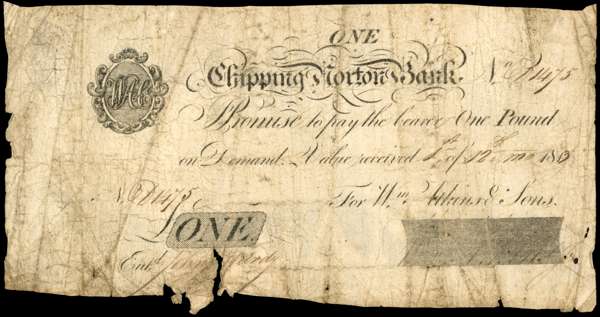 ONE
Chipping Norton Bank. No
I Promise to pay the bearer One Pound
on Demand. Value received 1st of 12th mo 18
No
For Wm. Atkins & Sons.
£ ONE.
Entd.